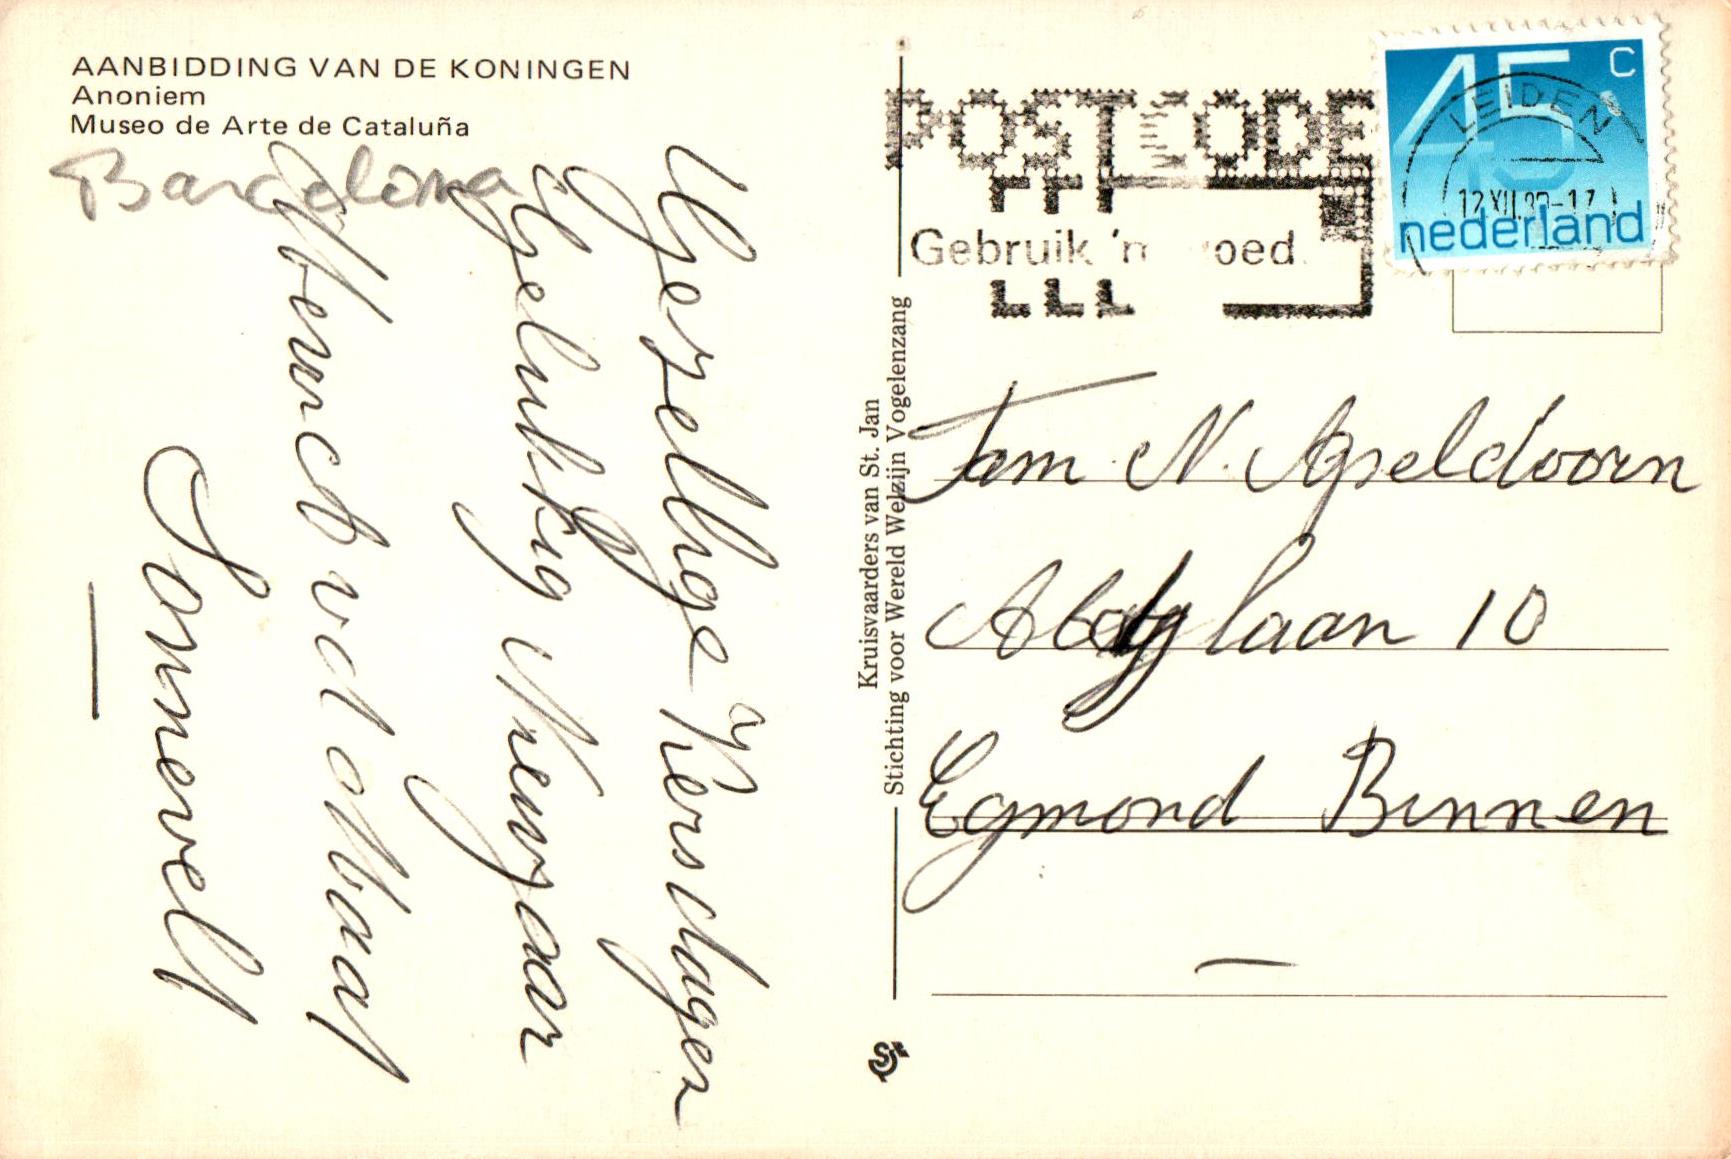 AANBIDDING VAN DE KONINGEN
Anoniem
Museo de Arte de Cataluña
Barcelona
Gezellige Kersdagen
Gelukkig Nieuwjaar
Sonneveld
Kruisvaarders van St. Jan
Stichting voor Wereld Welzijn Vogelenzang
POSTCODE
Gebruik 'm goed.
45 c
nederland
LEIDEN
12 XII
Fam. N. Apeldoorn
Abdylaan 10
Egmond Binnen